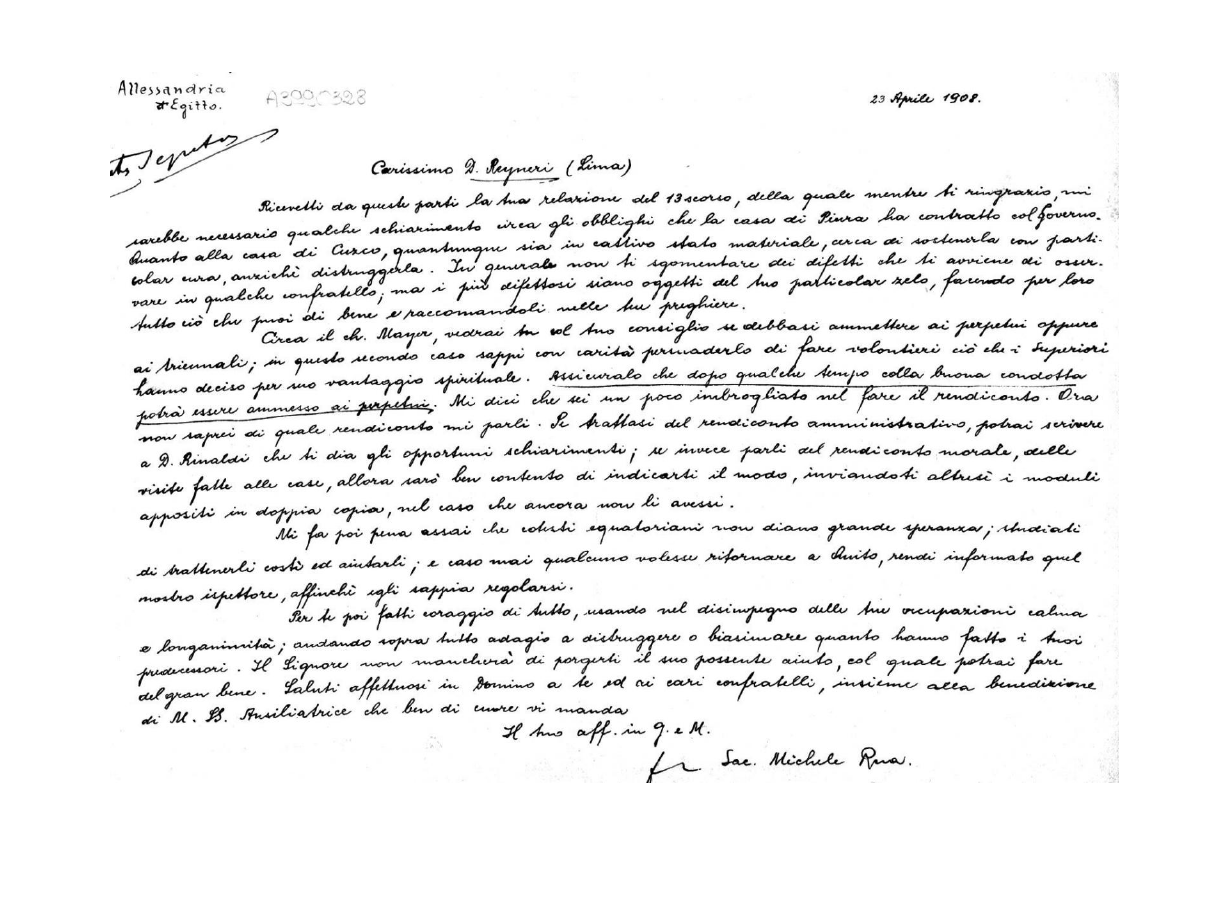 Allessandria
d'Egitto.
A3990328
23 Aprile 1908.
Carissimo D. Reyneri (Lima)
Ricevetti da queste parti la tua relazione del 13 scorso, della quale mentre ti ringrazio, mi
sarebbe necessario qualche schiarimento circa gli obblighi che la casa di Piura ha contratto col Governo.
Quanto alla casa di Cuzco, quantunque sia in cattivo stato materiale, cerca di sostenerla con parti-
colar cura, anzichè distruggerla. In generale non ti sgomentare dei difetti che ti avviene di osser-
vare in qualche confratello; ma i più difettosi siano oggetti del tuo particolar zelo, facendo per loro
tutto ciò che puoi di bene e raccomandoli nelle tue preghiere.
Circa il ch. Mayer, vedrai tu col tuo consiglio se debbasi ammettere ai perpetui oppure
ai triennali; in questo secondo caso sappi con carità persuaderlo di fare volontieri ciò che i Superiori
hanno deciso per suo vantaggio spirituale. Assicuralo che dopo qualche tempo colla buona condotta
potrà essere ammesso ai perpetui. Mi dici che sei un poco imbrogliato nel fare il rendiconto. Ora
non saprei di quale rendiconto mi parli. Se trattasi del rendiconto amministrativo, potrai scrivere
a D. Rinaldi che ti dia gli opportuni schiarimenti; se invece parli del rendiconto morale, delle
visite fatte alle case, allora sarò ben contento di indicarti il modo, inviandoti altresì i moduli
appositi in doppia copia, nel caso che ancora non li avessi.
Mi fa poi pena assai che cotesti equatoriani non diano grande speranza; studiati
di trattenerli costì ed aiutarli; e caso mai qualcuno volesse ritornare a Quito, rendi informato quel
nostro ispettore, affinchè egli sappia regolarsi.
Per te poi fatti coraggio di tutto, usando nel disimpegno delle tue occupazioni calma
e longanimità; andando sopra tutto adagio a distruggere o biasimare quanto hanno fatto i tuoi
predecessori. Il Signore non mancherà di porgerti il suo possente aiuto, col quale potrai fare
del gran bene. Saluti affettuosi in Domino a te ed ai cari confratelli, insieme alla benedizione
di M. SS. Ausiliatrice che ben di cuore vi manda
Il tuo aff. in G. e M.
Sac. Michele Rua.